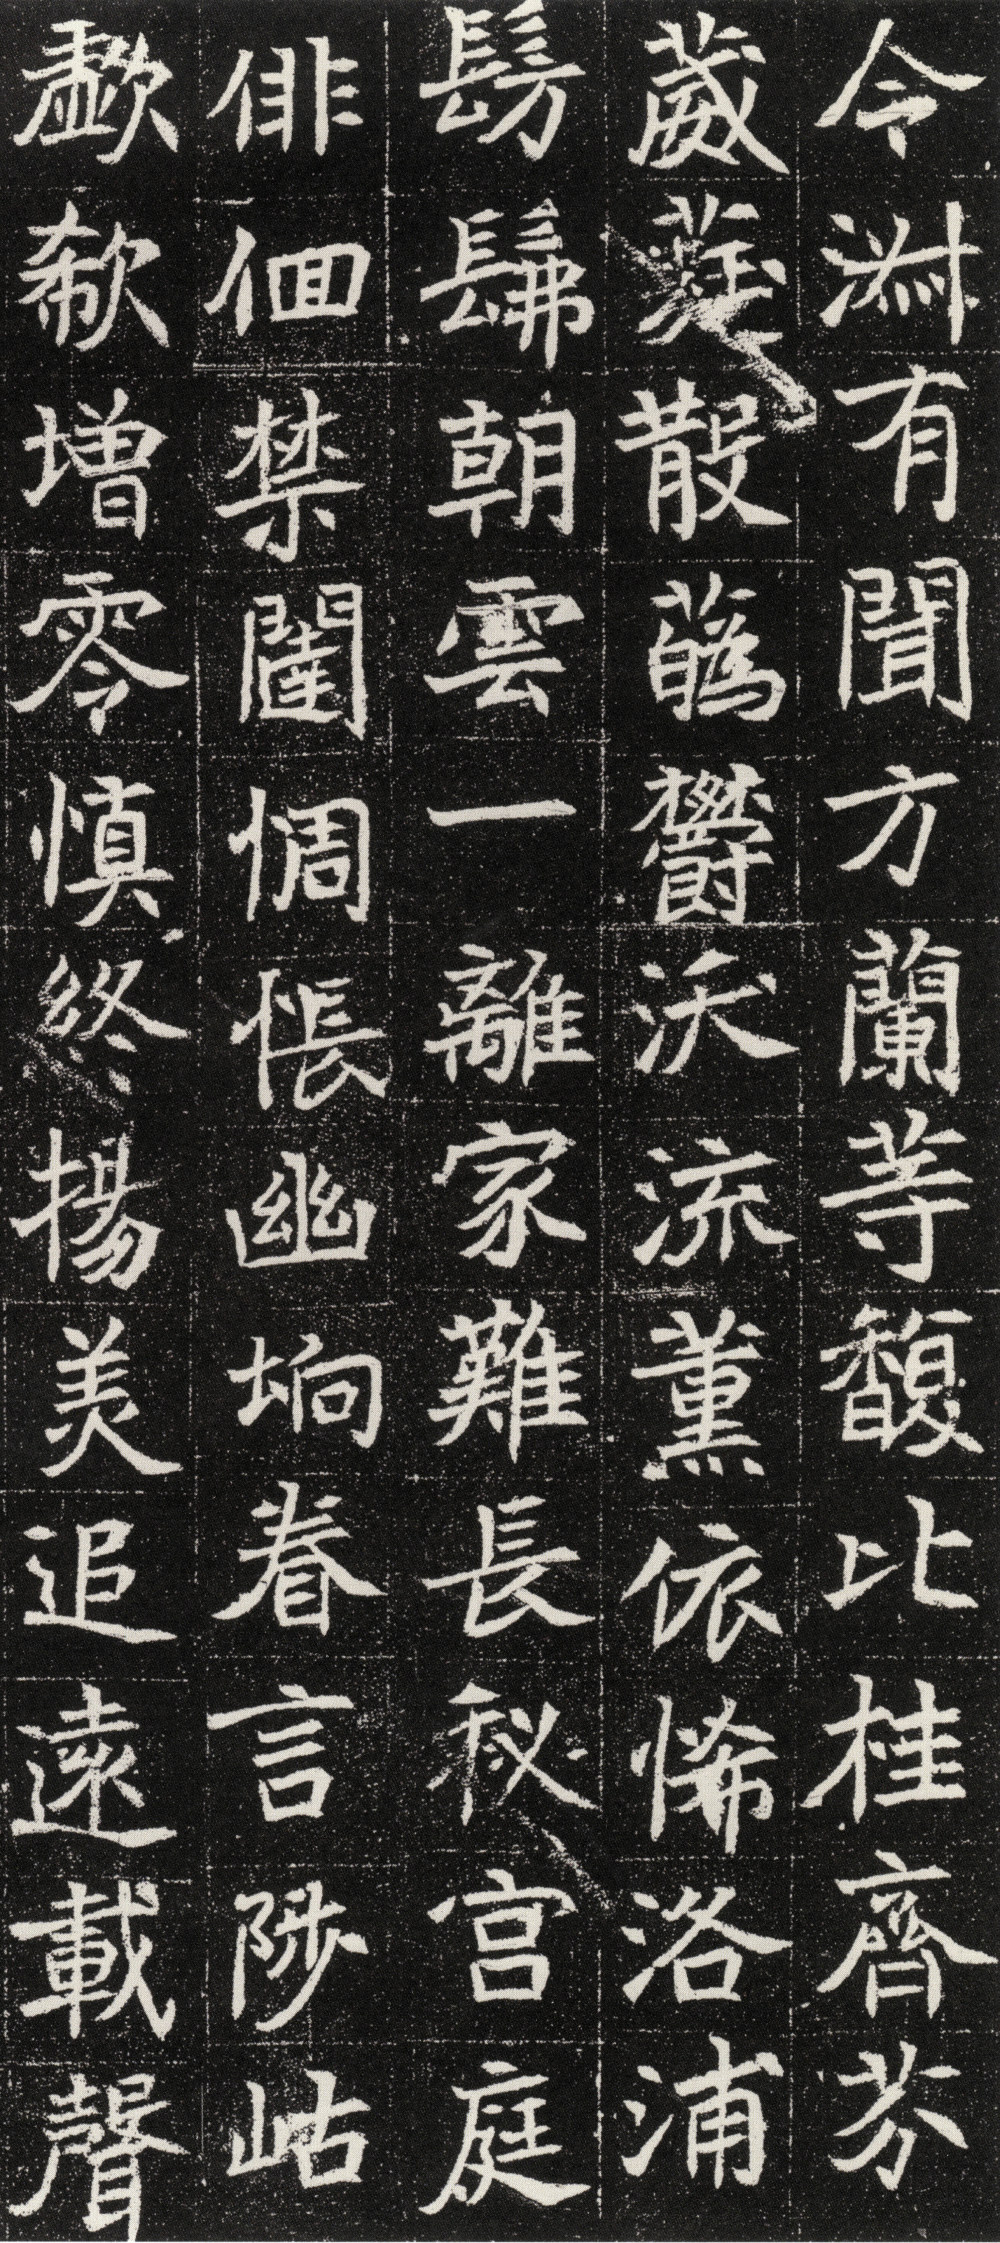 令淑有聞方蘭等馥比桂齊芬
葳蕤散蘤鬱沃流薰依悕洛浦
髣髴朝雲一離家難長秘宫庭
俳佪禁闥惆悵幽坰眷言陟岵
歔欷增零慎終揚美追遠載聲